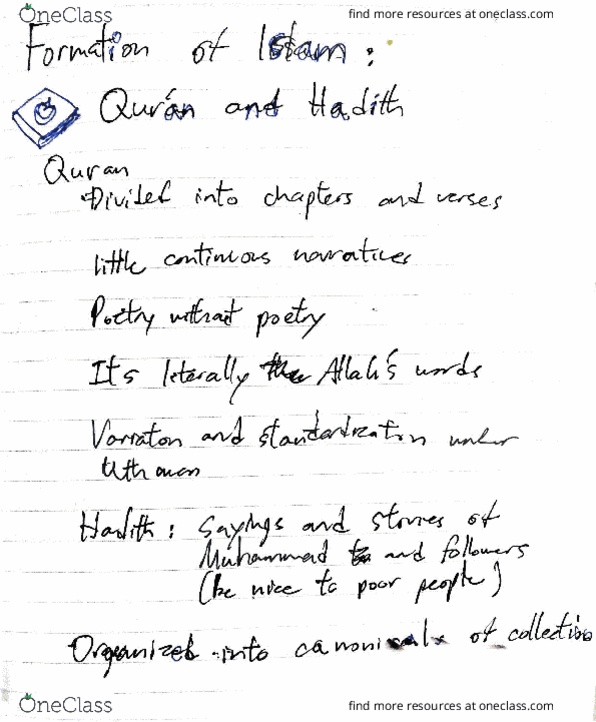 OneClass
find more resources at oneclass.com
Formation of Islam:
Qur'an and Hadith
Quran
Divided into chapters and verses
little continuous narratives
Poetry without poetry
It's literally the Allah's words
Variaton and standardization under
Uthman
Hadith: Sayings and stories of
Muhammad and followers
(be nice to poor people)
Organized into canonical of collection
OneClass
find more resources at oneclass.com